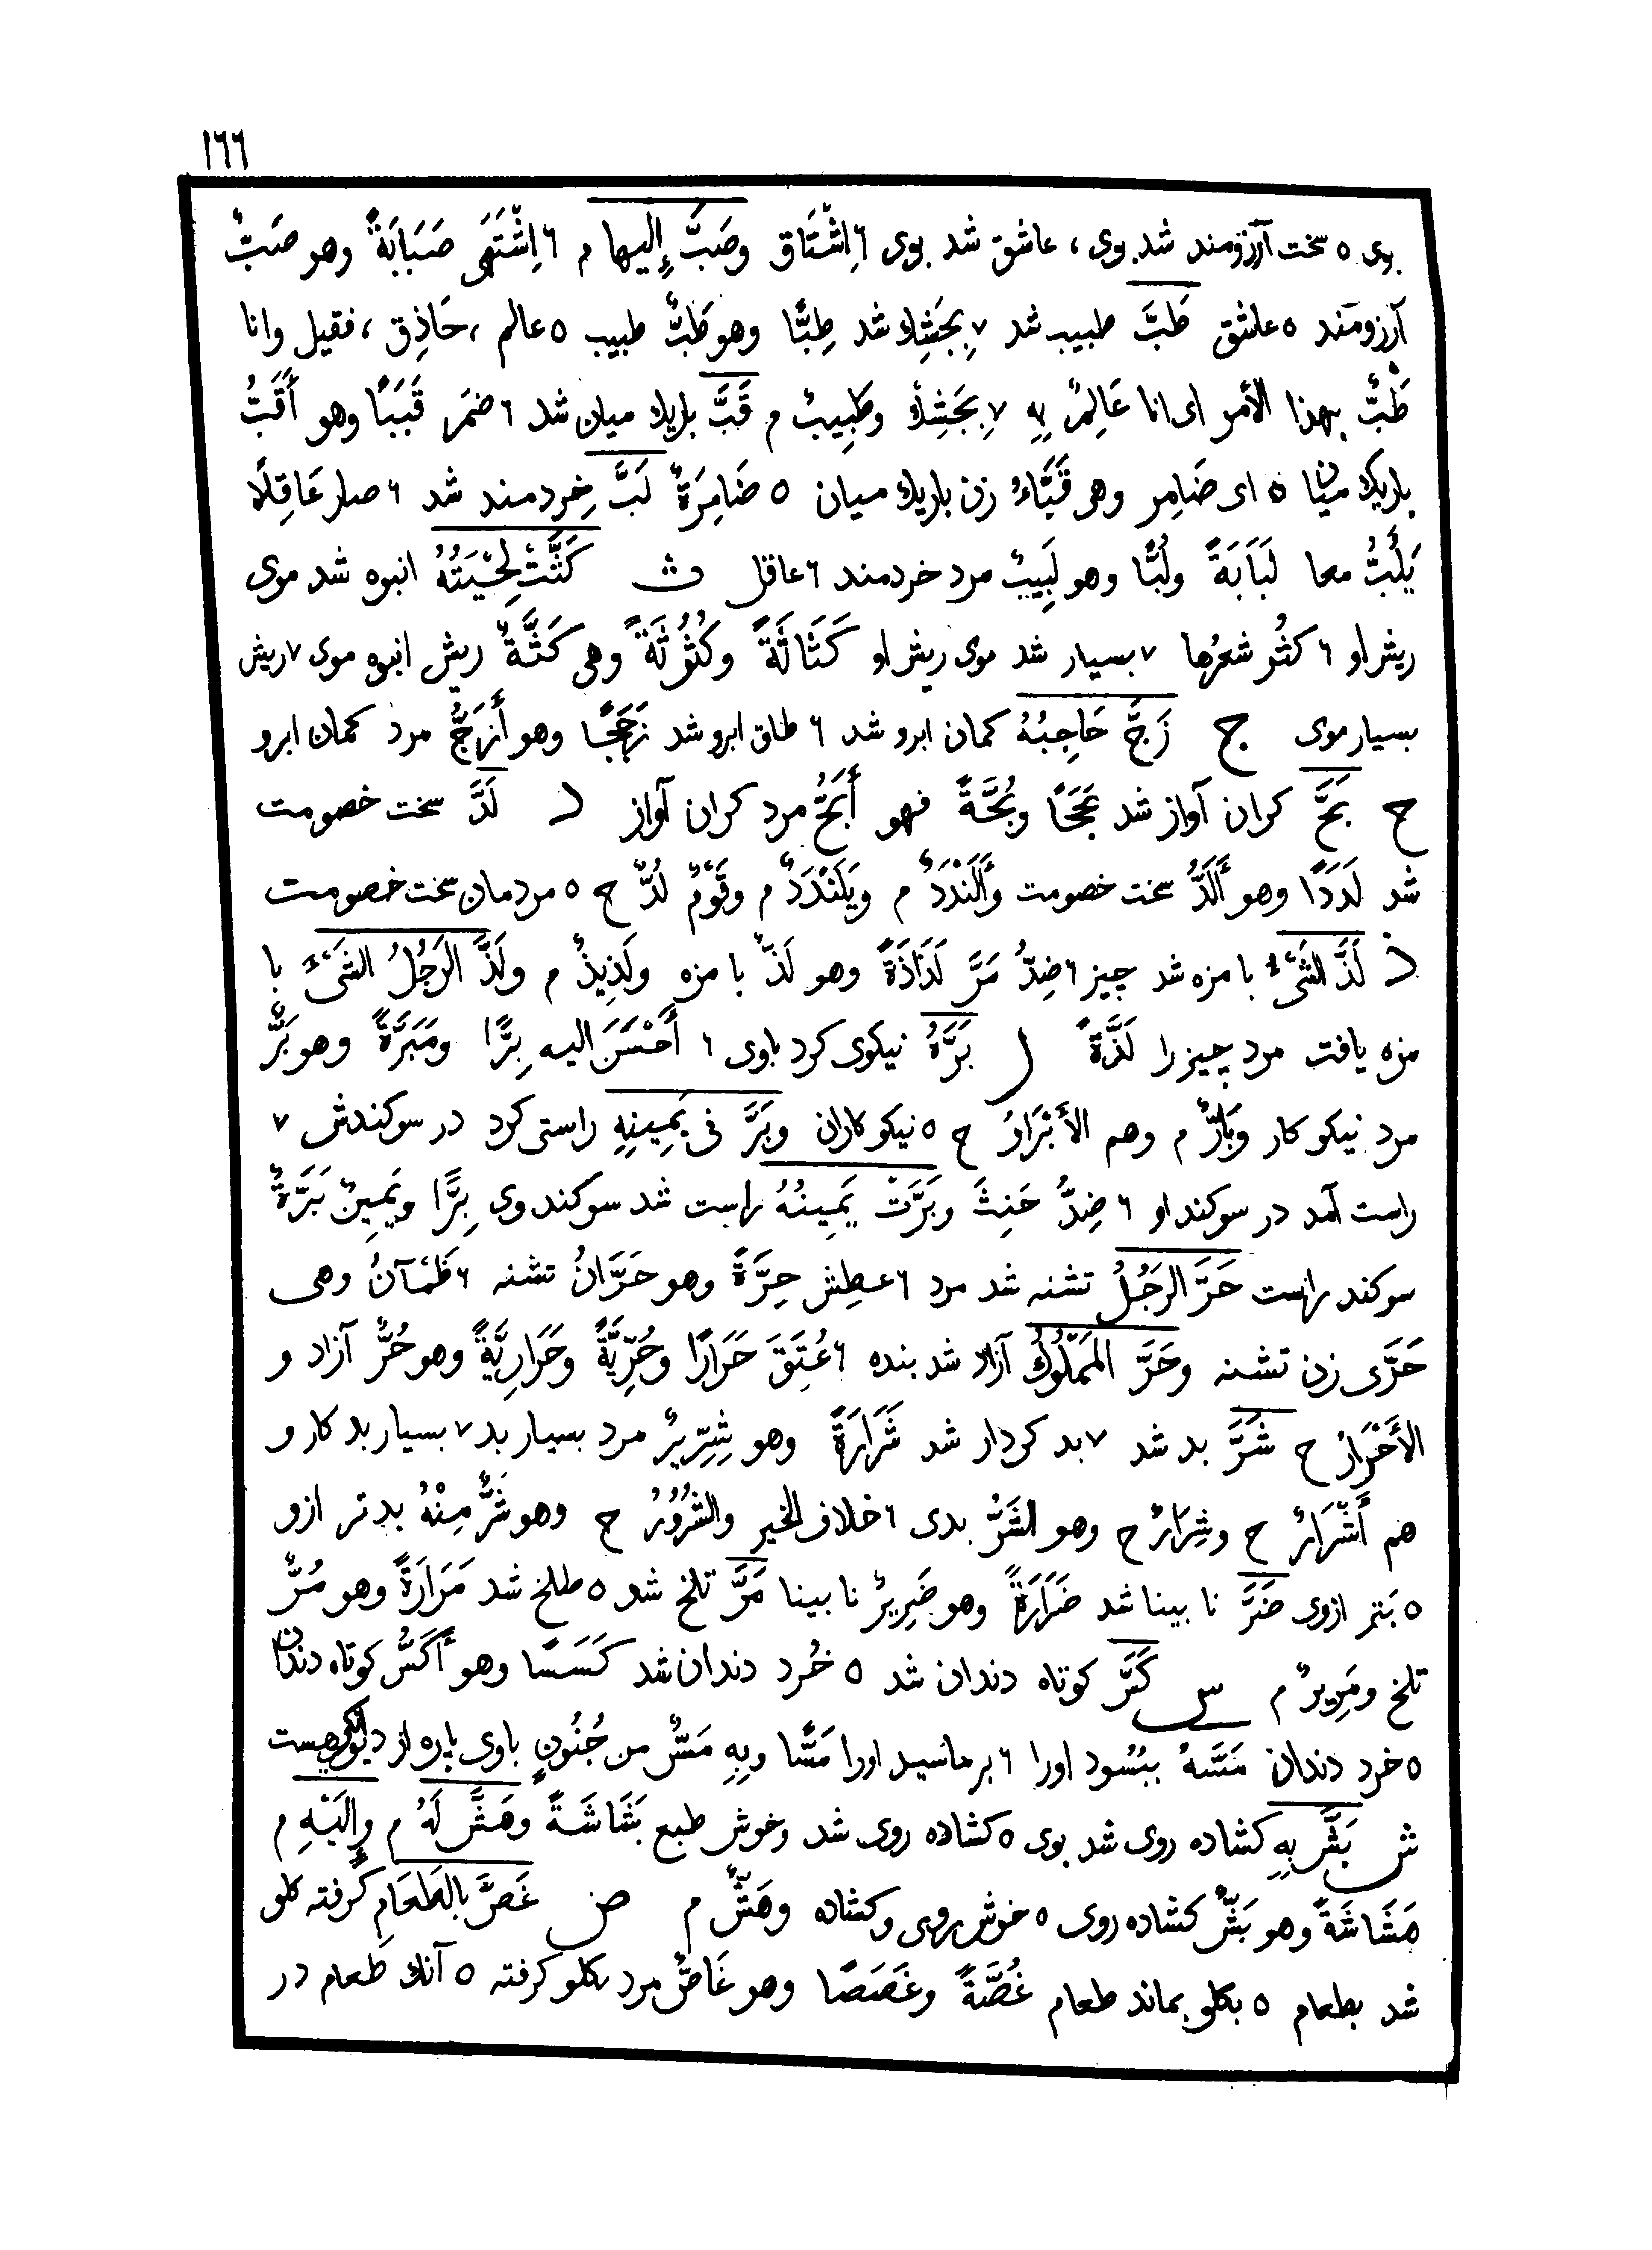 ١٦٦
بوی ٥ سخت آرزومند شد بوی ، عاشق شد بوی ٦ اِشْتَاق وصَبَّ إليها م ٦ اِشْتَهَى صَبَابَةً وهو صَبٌّ
آرزومند ٥ عاشق طَبَّ طبيب شد ٧ بِجَشِك شد طِبًّا وهو طَبٌّ طبيب ٥ عالم ، حَاذِق ، فقيل وانا
طَبٌّ بهذا الأمر ای انا عَالِمٌ بِهِ ٧ بِجَشِك وطَبِيبٌ م قَبَّ باريك ميان شد ٦ ضمَر قَبَبًا وهو أَقَبُّ
باريك ميان ٥ ای ضَامِر وهی قَبَّاءُ زن باريك ميان ٥ ضَامِرَةٌ لَبَّ خِردمند شد ٦ صار عَاقِلًا
يَلُبُّ معا لَبَابَةً ولُبًّا وهو لَبِيبٌ مرد خردمند ٦ عاقل ث كَثَّتْ لِحْيَتُهُ انبوه شد موی
ريش او ٦ كثُر شعرُها ٧ بسيار شد موی ريش او كَثَاثَةً وكُثُوثَةً وهی كَثَّةٌ ريش انبوه موی ٧ ريش
بسيار موی ج زَجَّ حَاجِبُهُ كمان ابرو شد ٦ طاق ابرو شد زَجَجًا وهو أَزَجُّ مرد كمان ابرو
ح بَحَّ كران آواز شد بَحَحًا وبُحَّةً فهو أَبَحُّ مرد كران آواز د لَدَّ سخت خصومت
شد لَدَدًا وهو أَلَدُّ سخت خصومت وأَلَنْدَدٌ م ويَلَنْدَدٌ م وقَوْمٌ لُدٌّ ح ٥ مردمان سخت خصومت
ذ لَذَّ الشَّیْءُ با مزه شد چيز ٦ ضِدُّ مَرَّ لَذَاذَةً وهو لَذٌّ با مزه ولَذِيذٌ م ولَذَّ الرَجُلُ الشَیْءَ با
مزه يافت مرد چيز را لَذَّةً ر بَرَّهُ نيكوی كرد باوی ٦ أَحْسَنَ اليه بِرًّا ومَبَرَّةً وهو بَرٌّ
مرد نيكو كار وبَارٌّ م وهم الأَبْرَارُ ح ٥ نيكو كاران وبَرَّ فی يَمِينِهِ راستی كرد در سوكندش ٧
راست آمد در سوكند او ٦ ضِدُّ حَنِثَ وبَرَّتْ يَمِينُهُ راست شد سوكند وی بِرًّا ويَمِينٌ بَرَّةٌ
سوكند راست حَرَّ الرجُلُ تشنه شد مرد ٦ عطِش حِرَّةً وهو حَرَّانُ تشنه ٦ ظَمْآنُ وهی
حَرَّى زن تشنه وحَرَّ المَمْلُوكُ آزاد شد بنده ٦ عُتِقَ حَرَارًا وحُرِّيَّةً وحَرَارِيَّةً وهو حُرٌّ آزاد و
الأَحْرَارُ ح شَرَّ بد شد ٧ بد كردار شد شَرَارَةً وهو شِرِّيرٌ مرد بسيار بد ٧ بسيار بد كار و
هم أَشْرَارٌ ح وشِرَارٌ ح وهو الشَرُّ بدی ٦ خلاف الخير والشُرُورُ ح وهو شَرٌّ مِنْهُ بدتر ازو
٥ بَتر ازوی ضَرَّ نا بينا شد ضَرَارَةً وهو ضَرِيرٌ نا بينا مَرَّ تلخ شد ٥ طلخ شد مَرَارَةً وهو مُرٌّ
تلخ ومَرِيرٌ م س كَسَّ كوتاه دندان شد ٥ خُرد دندان شد كَسَسًا وهو أَكَسُّ كوتاه دندان
٥ خرد دندان مَسَّهُ ببُسود اورا ٦ برماسيد اورا مَسًّا وبِهِ مَسٌّ من جُنُونٍ باوی پاره از هست
ش بَشَّ بِهِ كشاده روی شد بوی ٥ كشاده روی شد وخوش طبع بَشَاشَةً وهَشَّ لَهُ م وإلَيْهِ م
هَشَاشَةً وهو بَشٌّ كشاده روی ٥ خوش روی وكشاده وهَشٌّ م ص غَصَّ بالطَعَامِ كرفته كلو
شد بطعام ٥ بكلو بماند طعام غُصَّةً وغَصَصًا وهو غَاصٌّ مرد كلو كرفته ٥ آنك طعام در